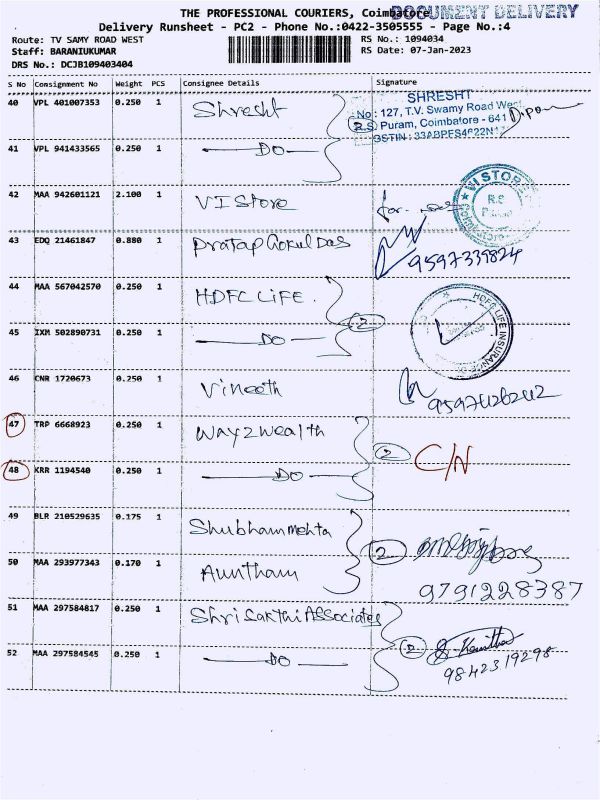 THE PROFESSIONAL COURIERS, Coimbatore
DOCUMENT DELIVERY
Delivery Runsheet - PC2 - Phone No.:0422-3505555 - Page No.:4
Route: TV SAMY ROAD WEST
RS No.: 1094034
Staff: BARANIUKUMAR
RS Date: 07-Jan-2023
DRS No.: DCJB109403404
S No Consignment No Weight PCS Consignee Details Signature
40 VPL 401007353 0.250 1 Shresht
SHRESHT
No: 127, T.V. Swamy Road West
R.S. Puram, Coimbatore - 641
GSTIN : 33ABPFS4622N1
41 VPL 941433565 0.250 1 DO
42 MAA 942601121 2.100 1 VI Store for
VI STORE
R.S
43 EDQ 21461847 0.880 1 Pratap Gokul Das
9597339824
44 MAA 567042570 0.250 1 HDFC LIFE.
2
HDFC LIFE INSURANCE
45 IXM 502890731 0.250 1 DO
46 CNR 1720673 0.250 1 Vineeth
47 TRP 6668923 0.250 1 Way2Wealth
2 C/N
48 KRR 1194540 0.250 1 DO
49 BLR 210529635 0.175 1 Shubham mehta
2
50 MAA 293977343 0.170 1 Auntham
9791228387
51 MAA 297584817 0.250 1 Shri Sakthi Associates
2 S. Kavitha
52 MAA 297584545 0.250 1 DO
9842319298